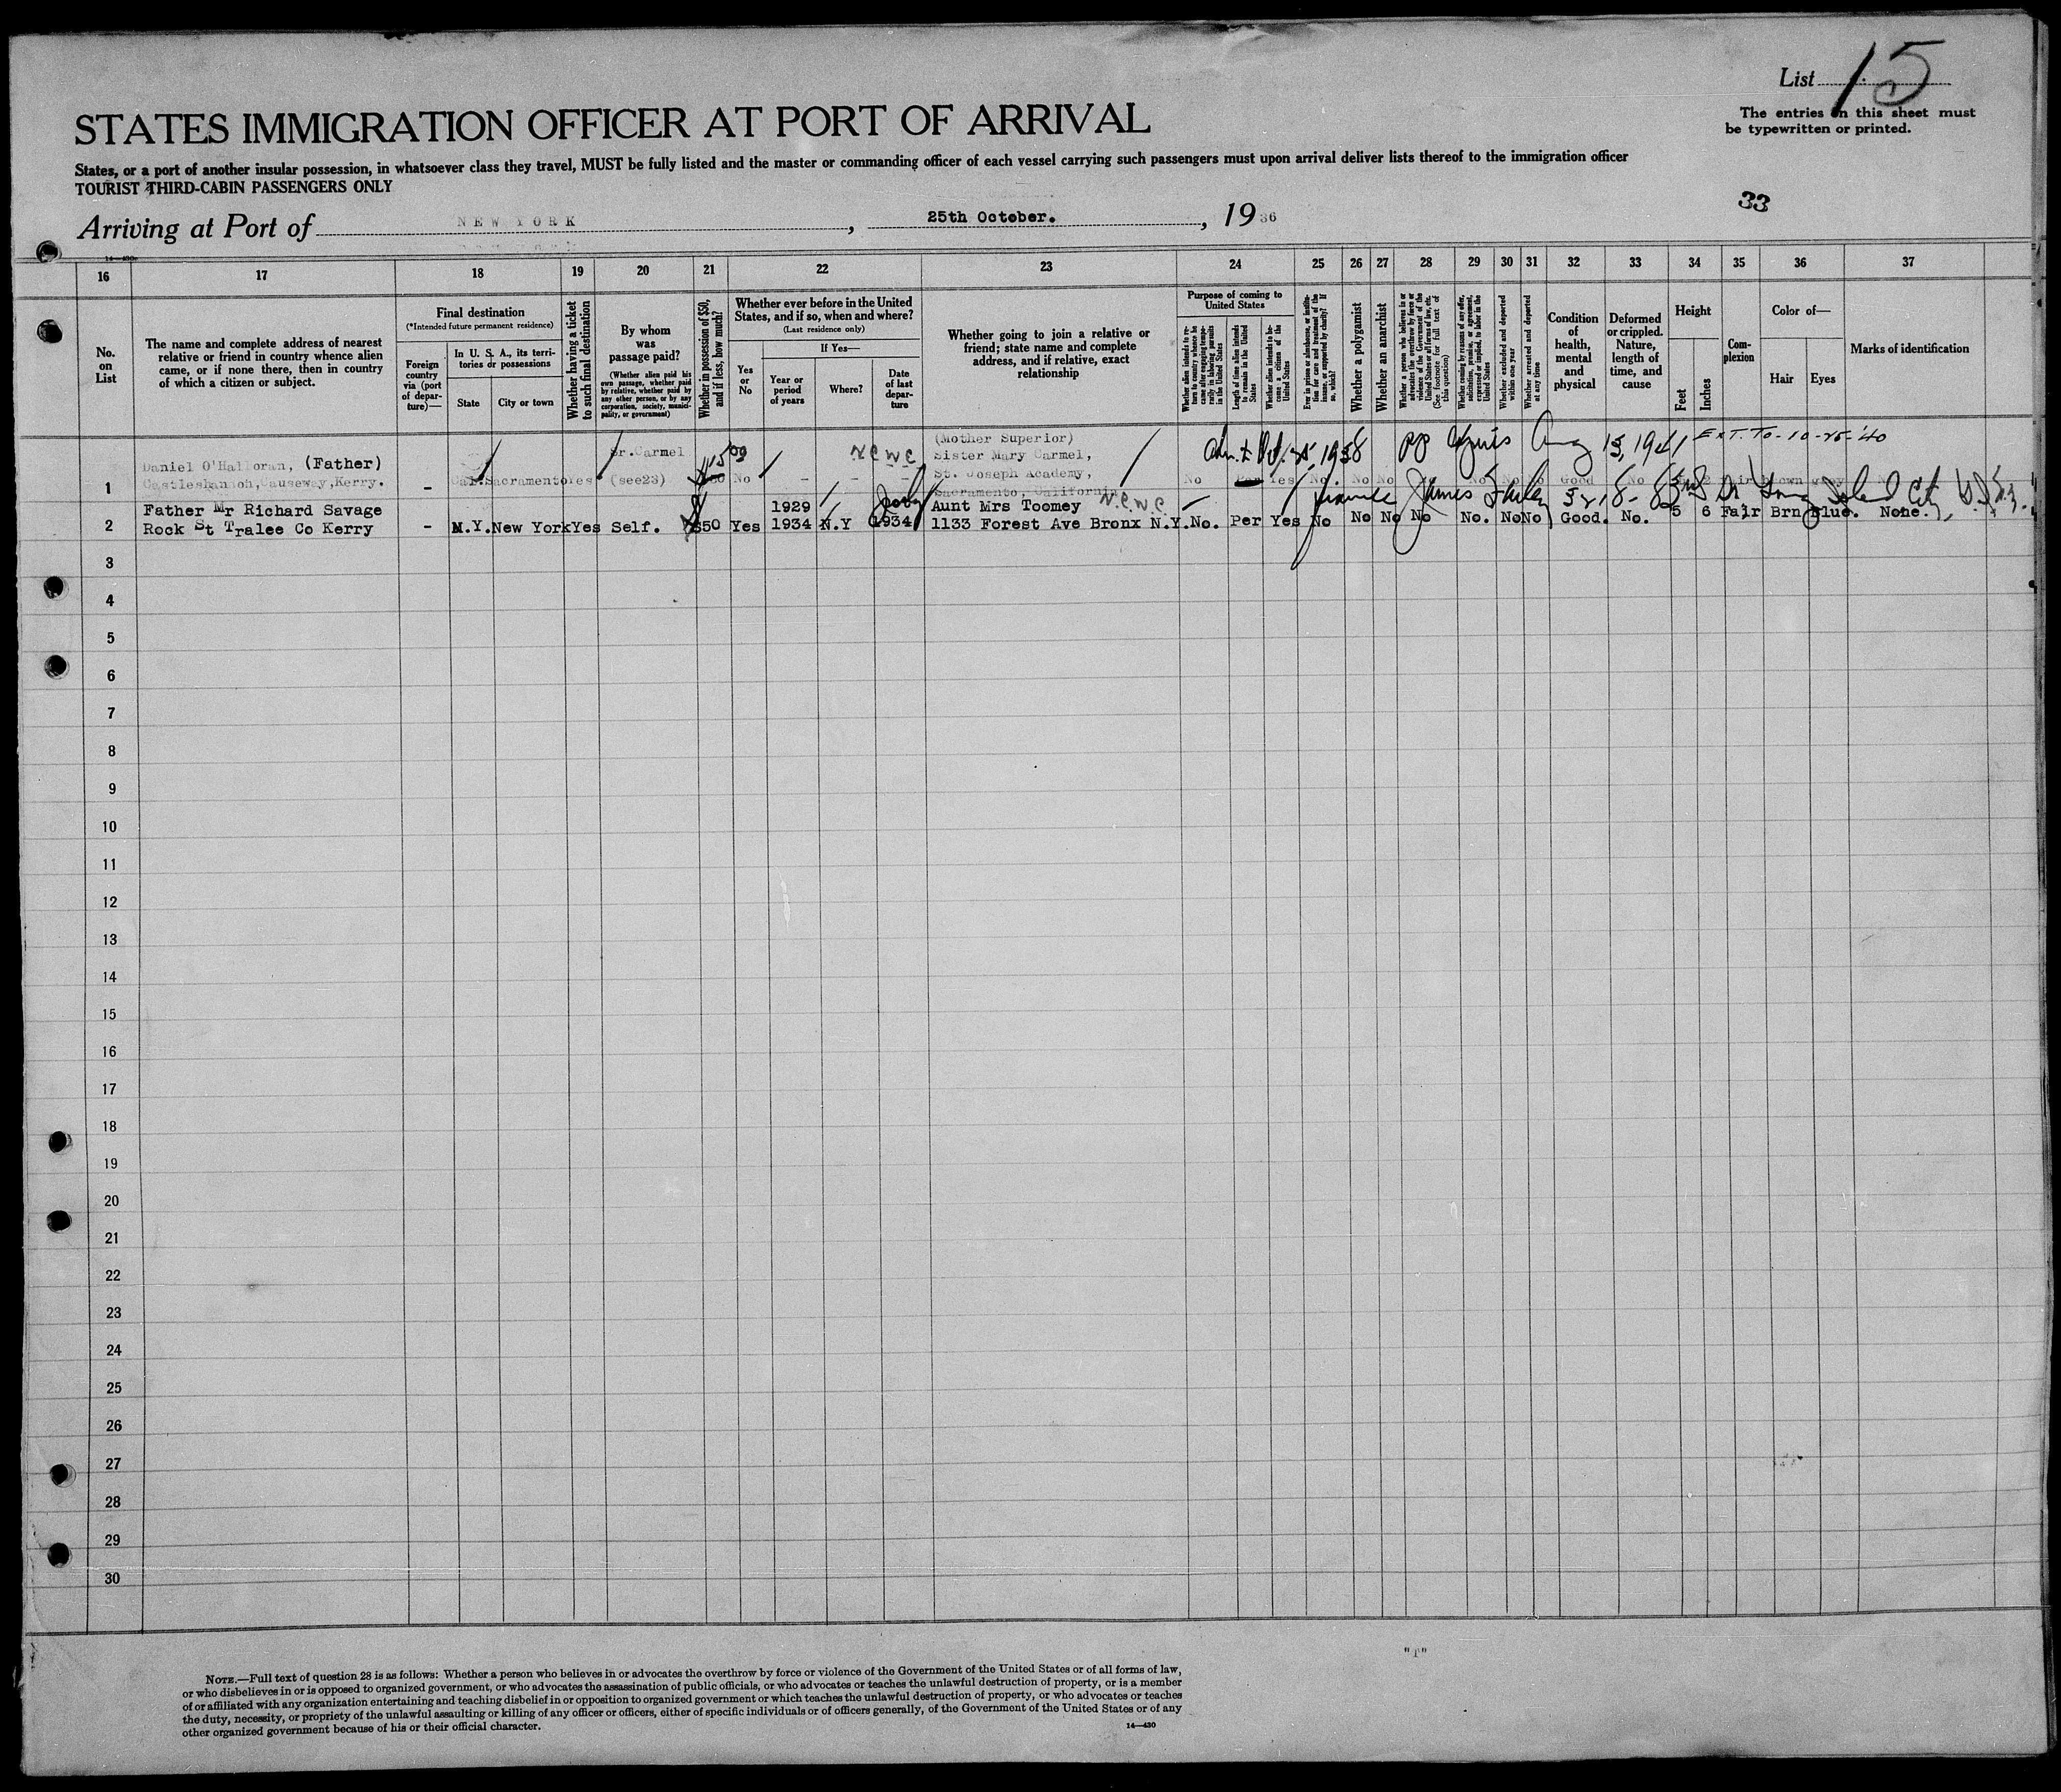 List 15
The entries on this sheet must
be typewritten or printed.
STATES IMMIGRATION OFFICER AT PORT OF ARRIVAL
States, or a port of another insular possession, in whatsoever class they travel, MUST be fully listed and the master or commanding officer of each vessel carrying such passengers must upon arrival deliver lists thereof to the immigration officer
TOURIST THIRD-CABIN PASSENGERS ONLY
33
Arriving at Port of NEW YORK, 25th October., 1936
14—430
16 17 18 19 20 21 22 23 24 25 26 27 28 29 30 31 32 33 34 35 36 37
No. on List
The name and complete address of nearest
relative or friend in country whence alien
came, or if none there, then in country
of which a citizen or subject.
Final destination
(*Intended future permanent residence)
Foreign country via (port of departure)—
In U. S. A., its territories or possessions
State
City or town
Whether having a ticket to such final destination
By whom was passage paid?
(Whether alien paid his own passage, whether paid by relative, whether paid by any other person, or by any corporation, society, municipality, or government)
Whether in possession of $50, and if less, how much?
Whether ever before in the United
States, and if so, when and where?
(Last residence only)
If Yes—
Yes or No
Year or period of years
Where?
Date of last departure
Whether going to join a relative or
friend; state name and complete
address, and if relative, exact
relationship
Purpose of coming to United States
Whether alien intends to return to country whence he came after engaging temporarily in laboring pursuits in the United States
Length of time alien intends to remain in the United States
Whether alien intends to become a citizen of the United States
Ever in prison or almshouse, or institution for care and treatment of the insane, or supported by charity? If so, which?
Whether a polygamist
Whether an anarchist
Whether a person who believes in or advocates the overthrow by force or violence of the Government of the United States or all forms of law, etc. (See footnote for full text of this question)
Whether coming by reason of any offer, solicitation, promise, or agreement, expressed or implied, to labor in the United States
Whether excluded and deported within one year
Whether arrested and deported at any time
Condition of health, mental and physical
Deformed or crippled. Nature, length of time, and cause
Height
Feet
Inches
Complexion
Color of—
Hair
Eyes
Marks of identification
Daniel O'Halloran, (Father)
1 Castleshannon, Causeway, Kerry. - Cal. Sacramento Yes Sr. Carmel (see23) 1500 No - - -
N.C.W.C
(Mother Superior)
Sister Mary Carmel,
St. Joseph Academy,
Sacramento, California
Oct. 25, 1938 Aug 13, 1941 EXT. TO-10-25-'40
No Yes No No No No No Good No
James Farley Long Island City
Father Mr Richard Savage 1929 Aunt Mrs Toomey N.C.W.C.
2 Rock St Tralee Co Kerry - N.Y. New York Yes Self. $50 Yes 1934 N.Y 1934 1133 Forest Ave Bronx N.Y. No. Per Yes No No No No No. No No Good. No. 5 6 Fair Brn Blue. None.
3
4
5
6
7
8
9
10
11
12
13
14
15
16
17
18
19
20
21
22
23
24
25
26
27
28
29
30
"T"
NOTE.—Full text of question 28 is as follows: Whether a person who believes in or advocates the overthrow by force or violence of the Government of the United States or of all forms of law,
or who disbelieves in or is opposed to organized government, or who advocates the assassination of public officials, or who advocates or teaches the unlawful destruction of property, or is a member
of or affiliated with any organization entertaining and teaching disbelief in or opposition to organized government or which teaches the unlawful destruction of property, or who advocates or teaches
the duty, necessity, or propriety of the unlawful assaulting or killing of any officer or officers, either of specific individuals or of officers generally, of the Government of the United States or of any
other organized government because of his or their official character.
14—430